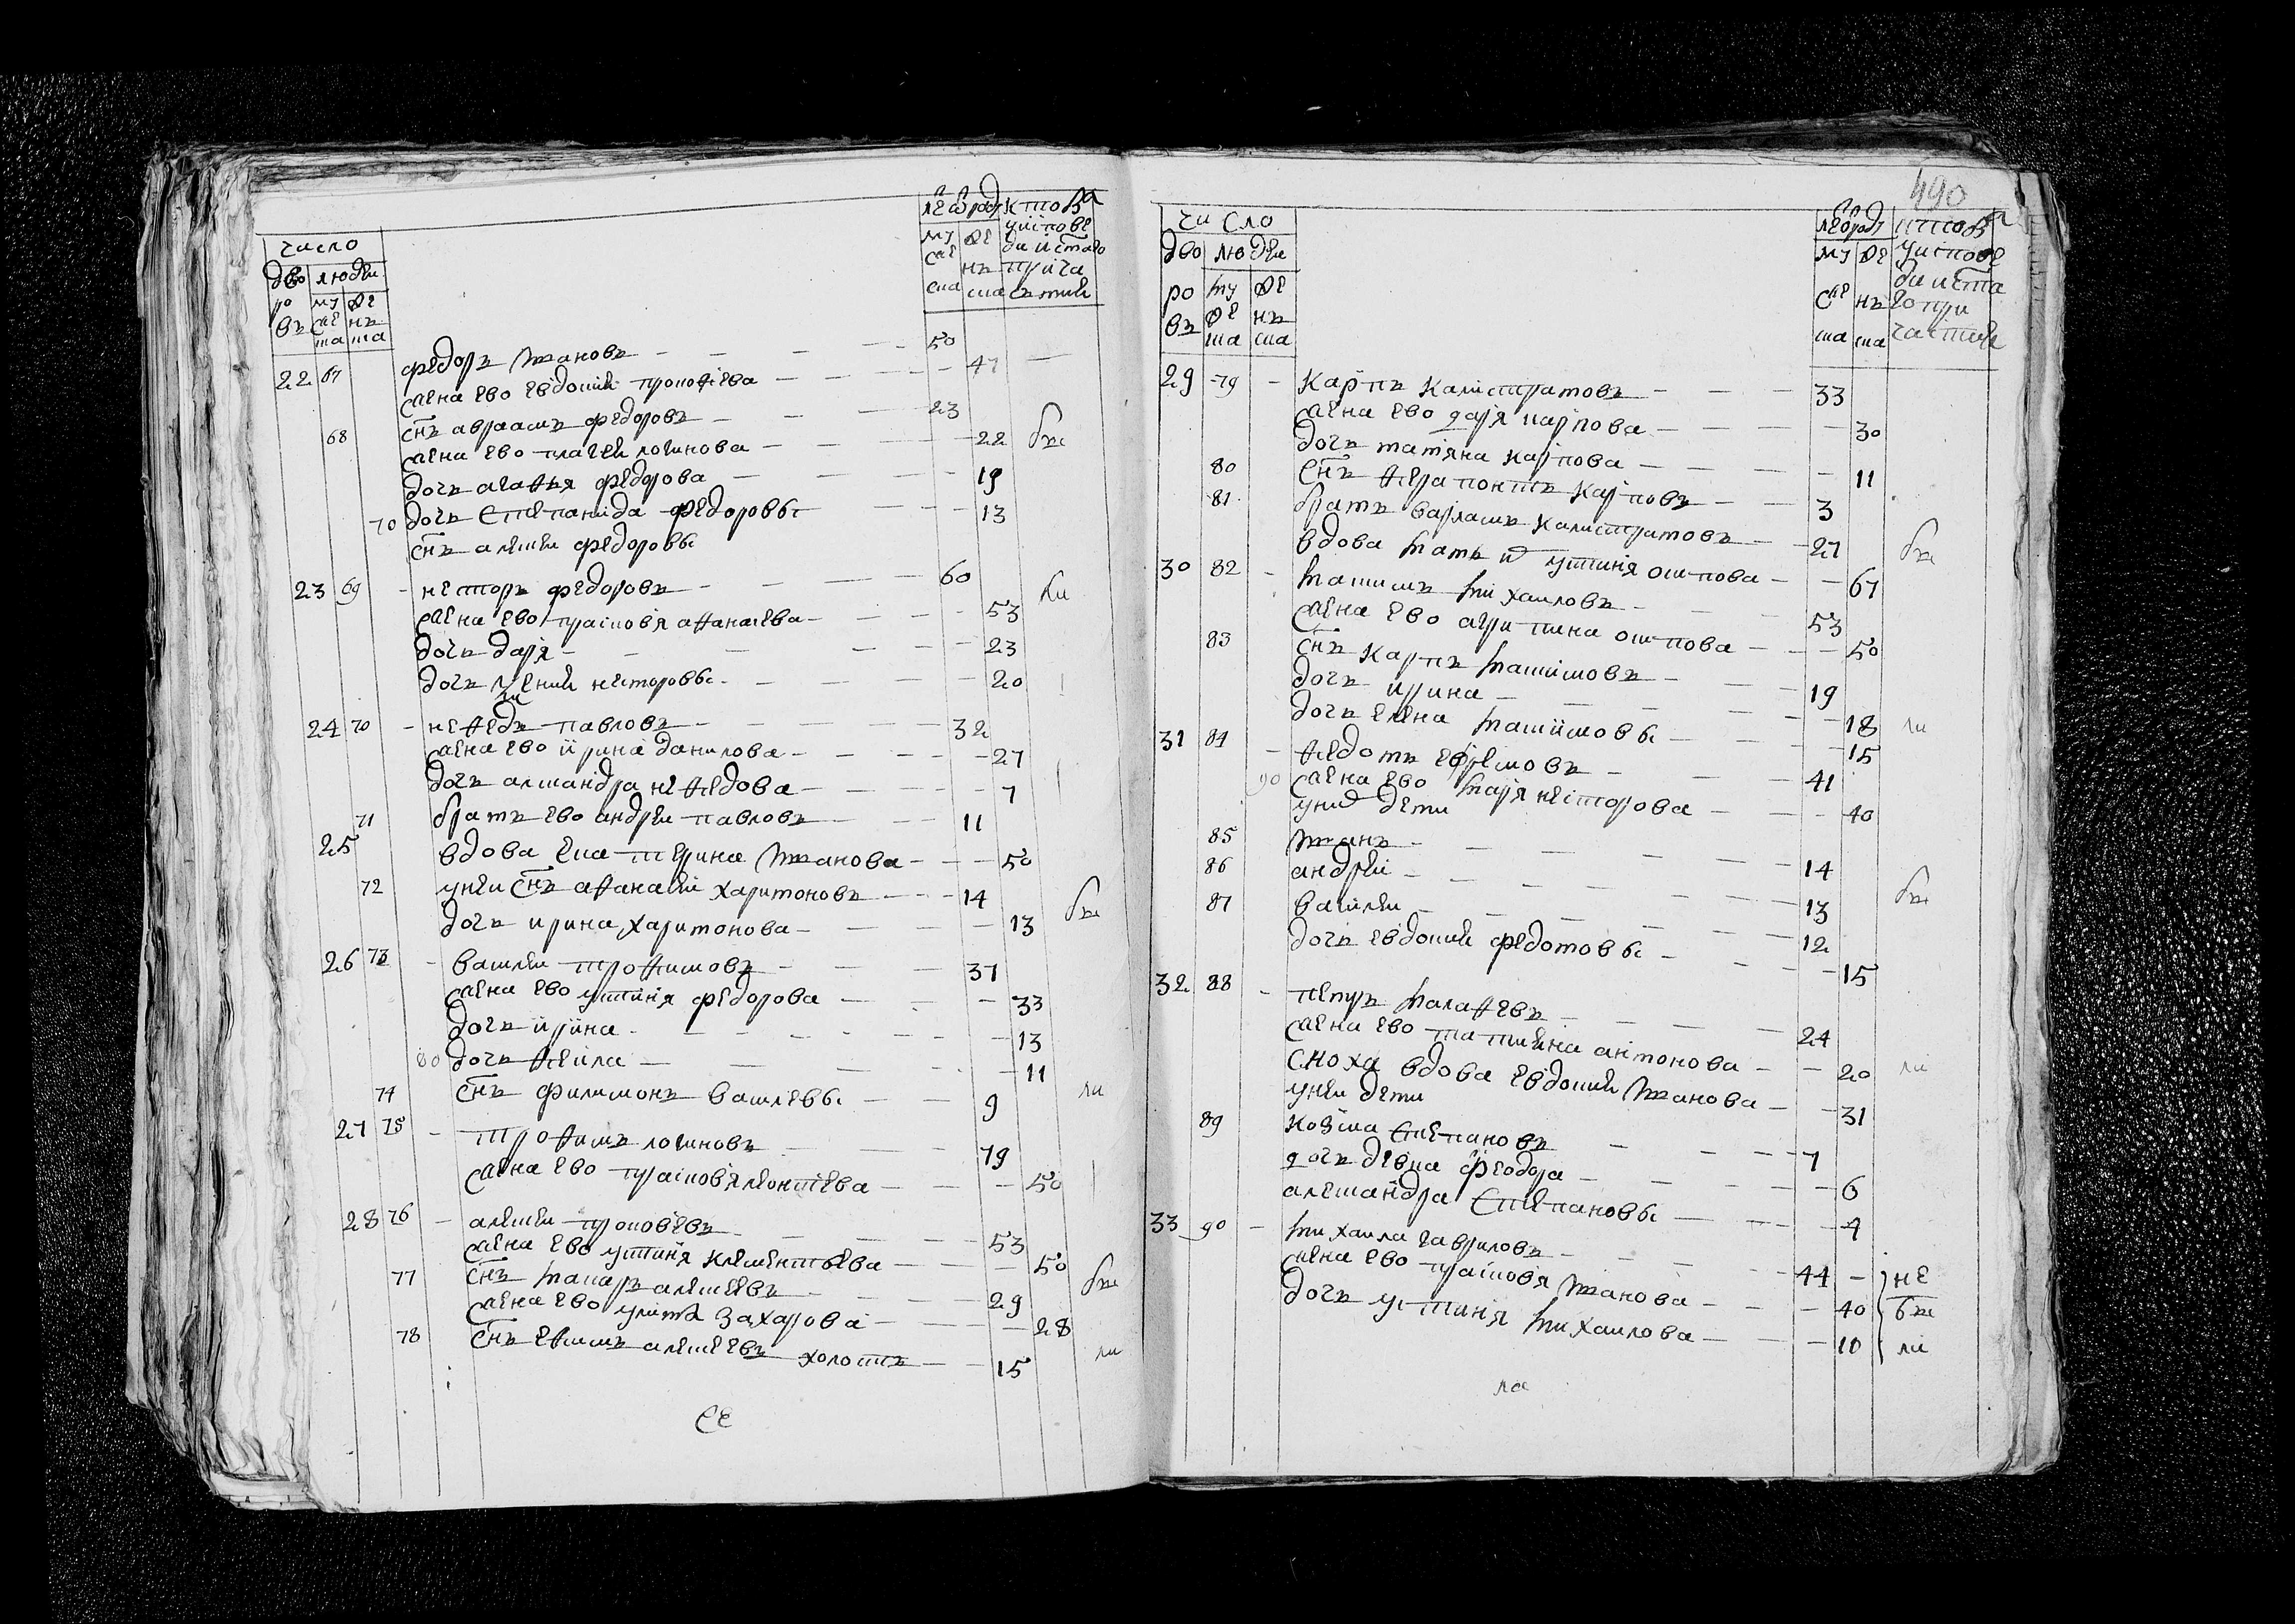 число
дво люди
ро му же
въ ска нъ
ска
лѣ ѿ род кто въ
му же
ска нъ
ска
22 67 федоръ Іванов 50
жена ево евдокия прокофіева 47
68 снъ авраамъ федоровъ 23
жена ево пелагея логинова 22
дочь агафия федорова 19
70 дочь степанида федоровы 13
снъ алексеи федоровы
23 69 несторъ федоровъ 60
жена ево прасковя афанасева 53
дочь даря 23
дочь ксения несторовы 20
24 70 нефедъ павловъ 32
жена ево ирина данилова 27
дочь александра нефедова 7
71 братъ ево андреи павловъ 11
25 вдова екатерина Іванова 50
72 у неи снъ афанасеи харитоновъ 14
дочь ирина харитонова 13
26 73 василеи трофимовъ 37
жена ево устиния федорова 33
дочь ирина 13
80 дочь фекла 11
74 снъ филимонъ василевы 9
27 75 трофимъ логиновъ 79
жена ево прасковя леонтіева 50
28 76 алексеи прокофевъ 53
жена ево устиния клементьева 50
77 снъ макаръ алексеевъ 29
жена ево улита захарова 28
78 снъ ефимъ алексеевъ холостъ 15
490
чи сло
дво люди
ро му же
въ же нъ
ска ска
29 79 карпъ калистратовъ 33
жена ево даря карпова 30
дочь татяна карпова 11
80 снъ ферапонтъ карповъ 3
81 братъ варламъ калистратовъ 27
вдова мать их устиния осипова 67
30 82 максимъ михаиловъ 53
жена ево агрипина осипова 50
83 снъ карпъ максимовъ 19
дочь ирина 18
дочь елена максимовы 15
31 84 федотъ ефремовъ 41
90 жена ево маря несторова 40
у них дети
85 Іванъ 14
86 андреи 13
87 василеи 12
дочь евдокия федотовы 15
32 88 петръ малафевъ 24
жена ево татияна антонова 20
сноха вдова евдокия Іванова 31
у неи дети
89 козма степановъ 7
дочь девка феодора 6
александра степановы 4
33 90 михаила гавриловъ 44
жена ево прасковя Іванова 40
дочь устиния михаилова 10
не
бы
ли